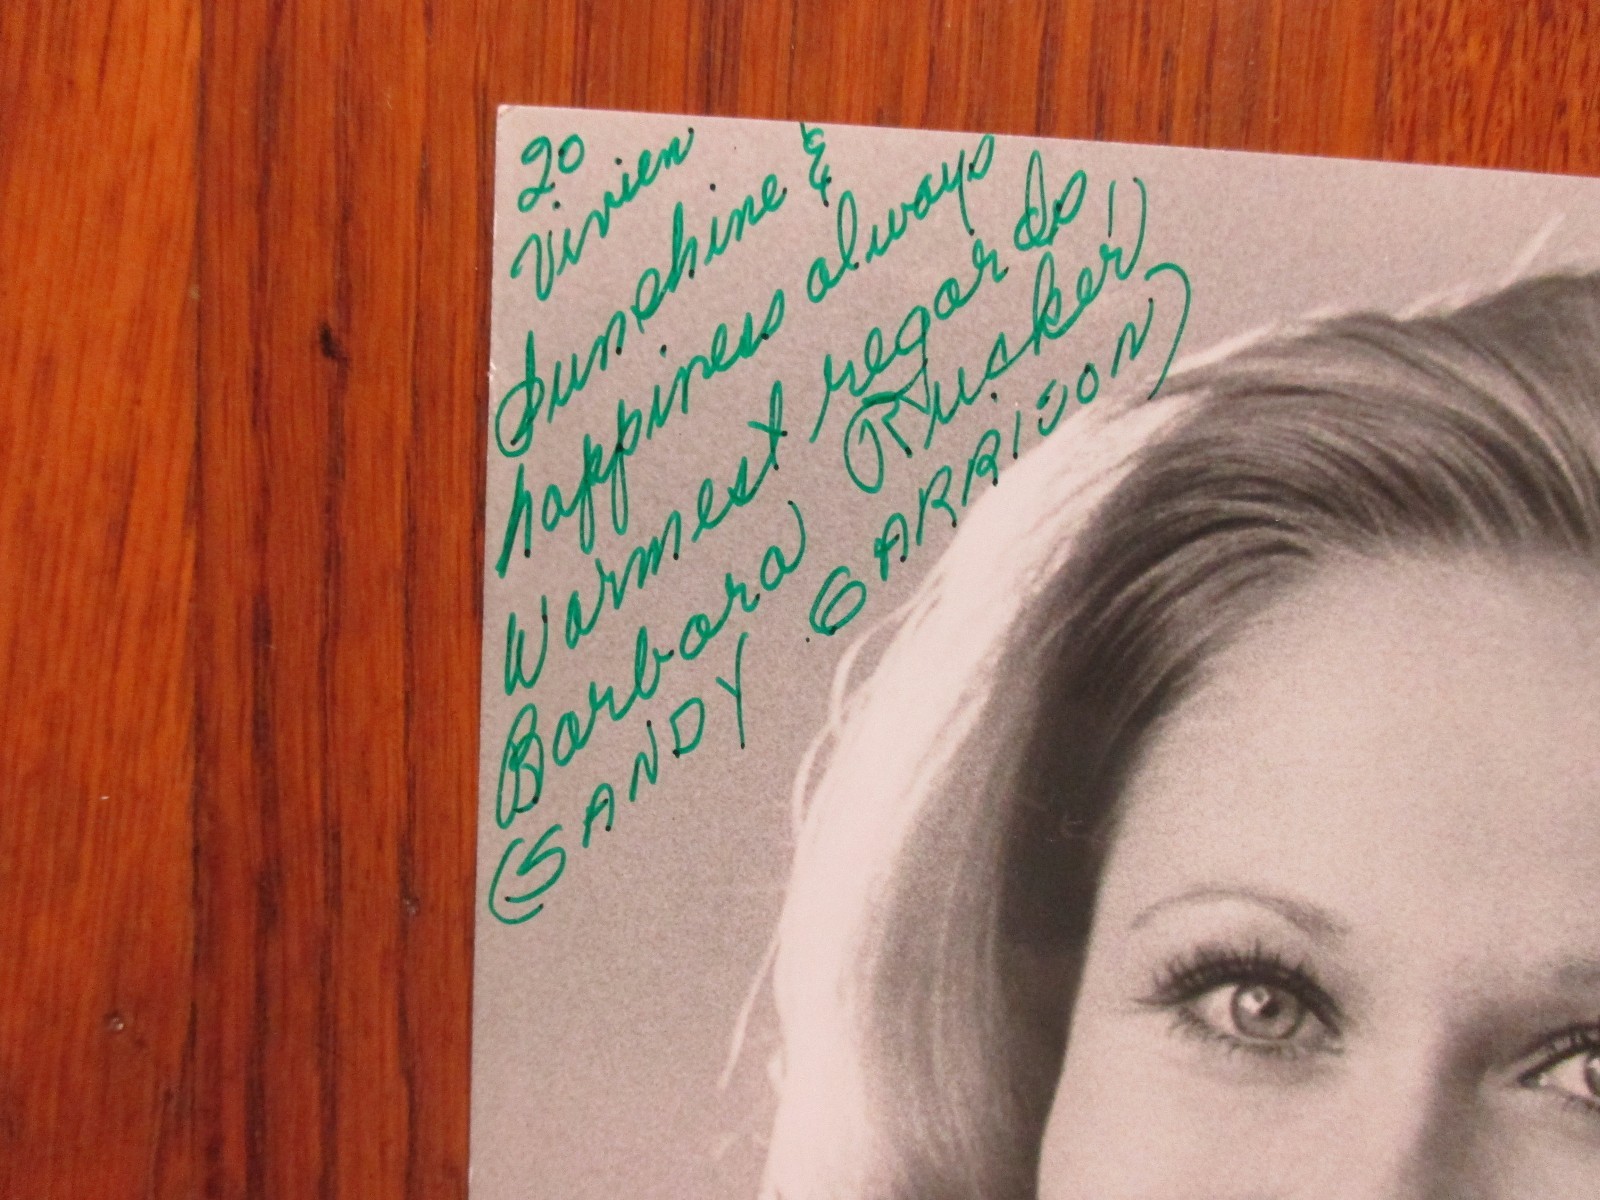 To
Vivien
Sunshine &
happiness always
Warmest regards,
Barbara Rusker
(SANDY GARRISON)